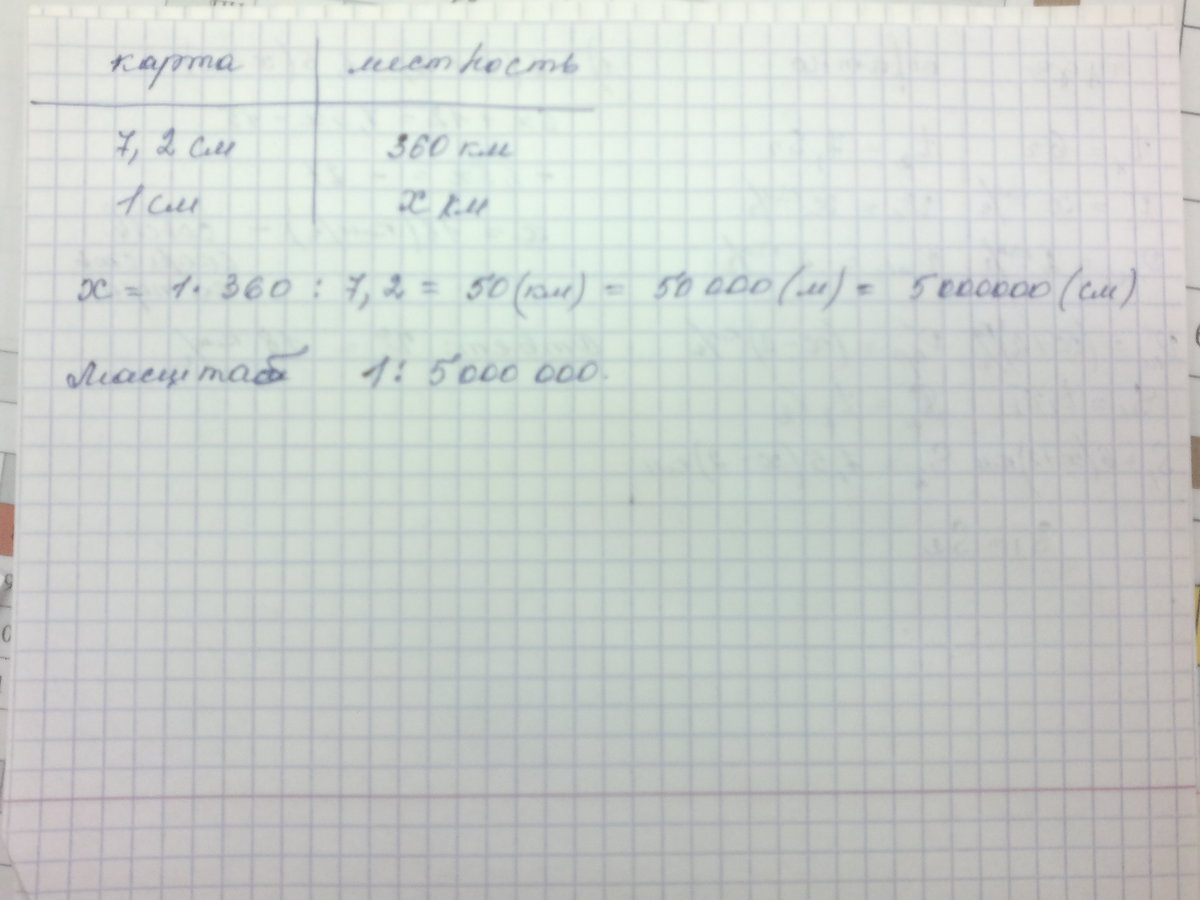 карта местность
7,2 см 360 км
1 см х км
х = 1 · 360 : 7,2 = 50 (км) = 50 000 (м) = 5 000000 (см)
Масштаб 1 : 5 000 000.